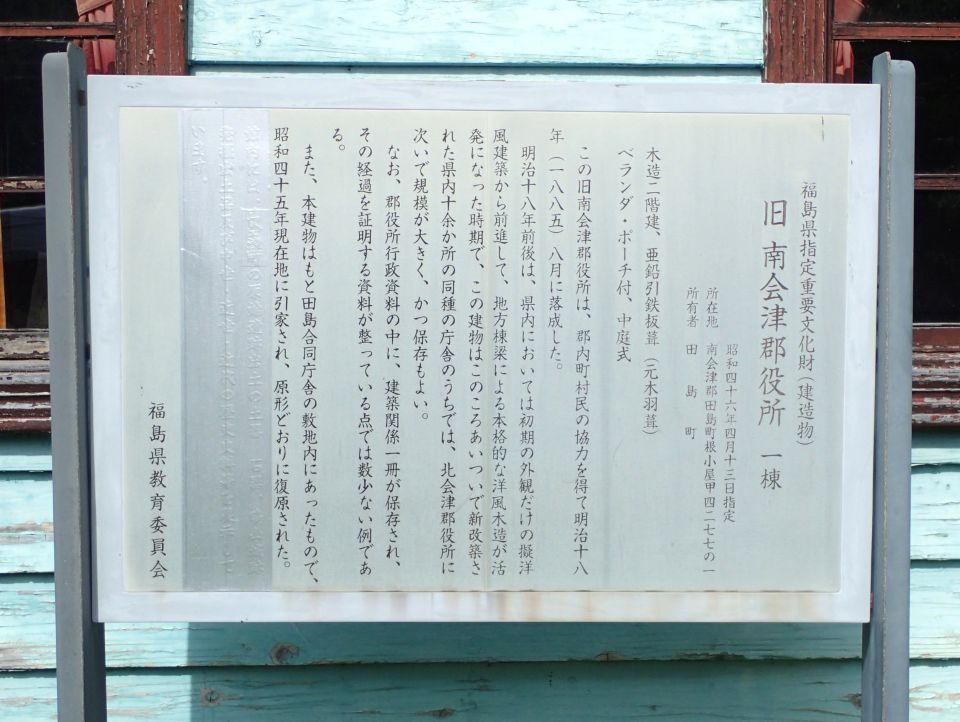 福島県指定重要文化財（建造物）
旧 南会津郡役所 一棟
昭和四十六年四月十三日指定
所在地 南会津郡田島町根小屋甲四二七七の一
所有者 田島町
木造二階建、亜鉛引鉄板葺（元木羽葺）
ベランダ・ポーチ付、中庭式
この旧南会津郡役所は、郡内町村民の協力を得て明治十八
年（一八八五）八月に落成した。
明治十八年前後は、県内においては初期の外観だけの擬洋
風建築から前進して、地方棟梁による本格的な洋風木造が活
発になった時期で、この建物はこのころあいついで新改築さ
れた県内十余か所の同種の庁舎のうちでは、北会津郡役所に
次いで規模が大きく、かつ保存もよい。
なお、郡役所行政資料の中に、建築関係一冊が保存され、
その経過を証明する資料が整っている点では数少ない例であ
る。
また、本建物はもと田島合同庁舎の敷地内にあったもので、
昭和四十五年現在地に引家され、原形どおりに復原された。
います。
福島県教育委員会